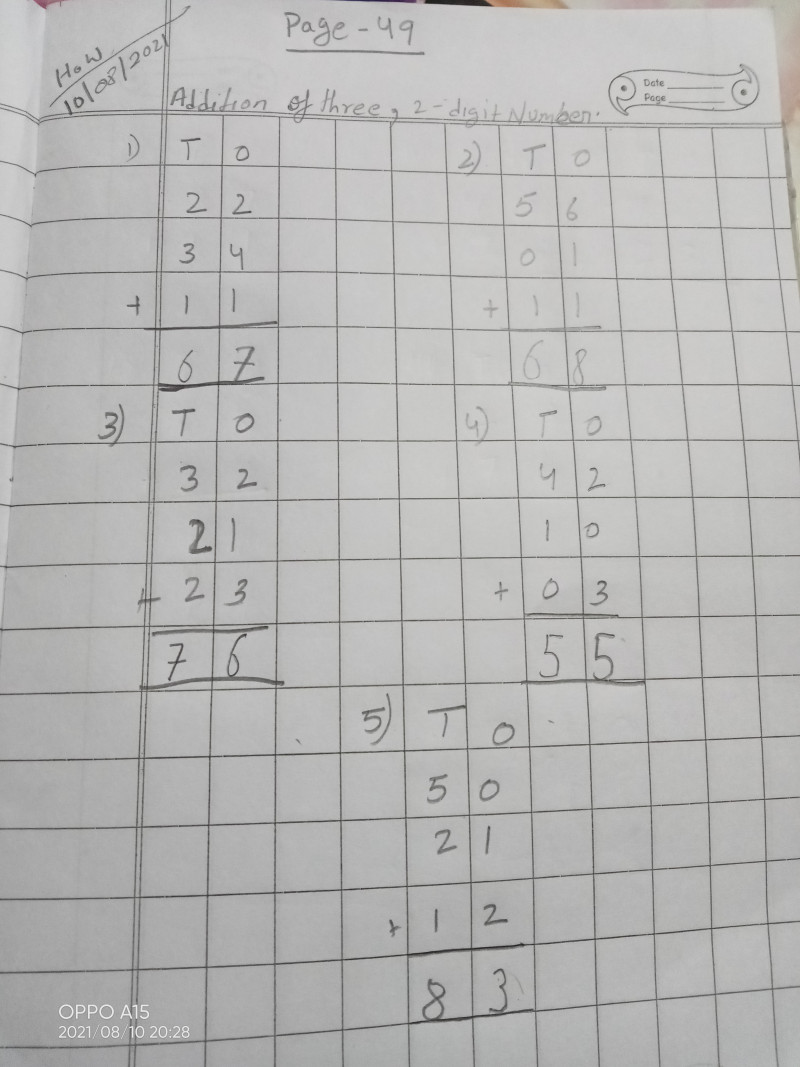 Page - 49
H.W
10/08/2021
Date
Page
Addition of three, 2-digit Number.
1) T O
2 2
3 4
+ 1 1
6 7
2) T O
5 6
0 1
+ 1 1
6 8
3) T O
3 2
2 1
+ 2 3
7 6
4) T O
4 2
1 0
+ 0 3
5 5
5) T O
5 0
2 1
+ 1 2
8 3
OPPO A15
2021/08/10 20:28